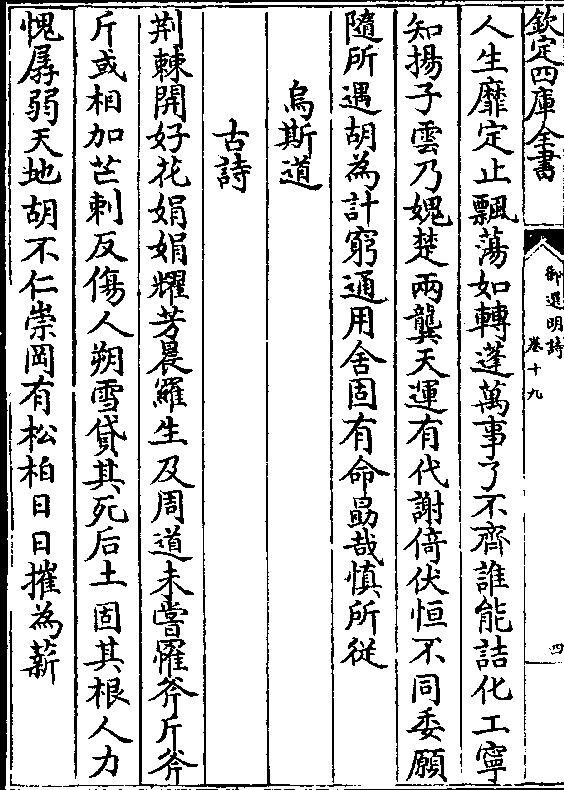 欽定四庫全書
御選明詩
卷十九
四
人生靡定止飄蕩如轉蓬萬事了不齊誰能詰化工寧
知揚子雲乃媿楚兩龔天運有代謝倚伏恒不同委願
隨所遇胡為計窮通用舍固有命勗哉慎所從
烏斯道
古詩
荆棘開好花娟娟耀芳晨羅生及周道未嘗罹斧斤斧
斤或相加芒刺反傷人朔雪貸其死后土固其根人力
愧孱弱天地胡不仁崇岡有松柏日日摧為薪